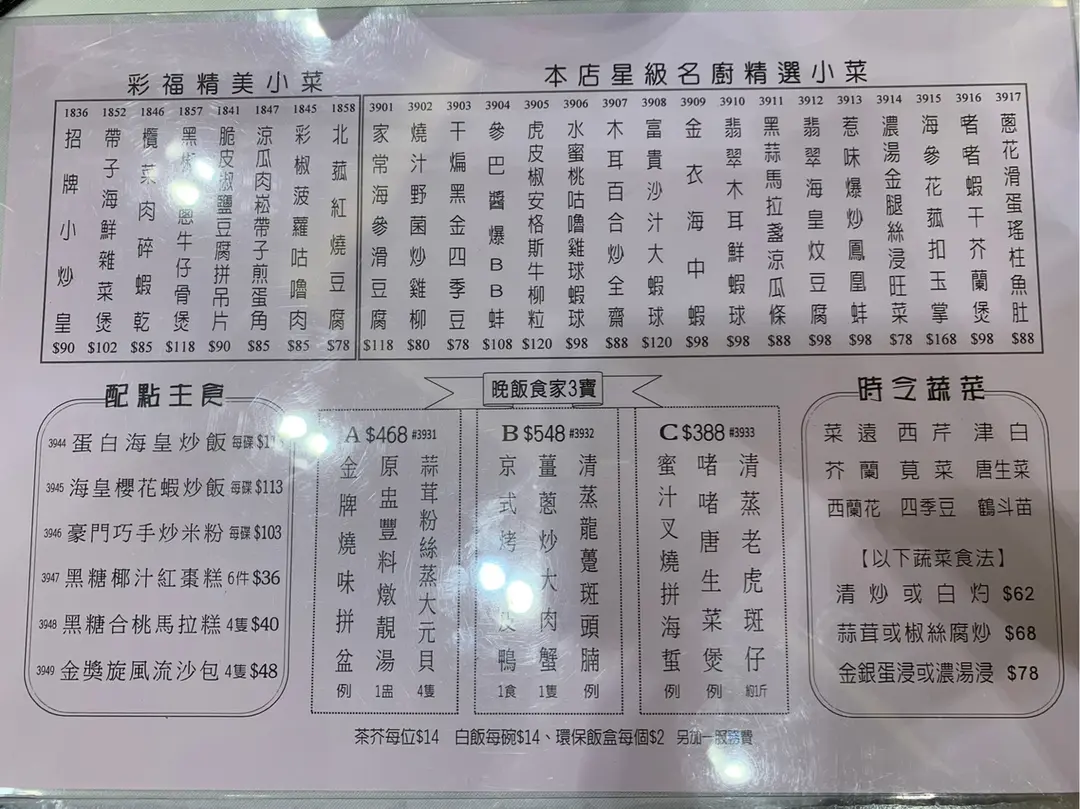 彩福精美小菜
1836 招牌小炒皇 $90
1852 帶子海鮮雜菜煲 $102
1846 欖菜肉碎蝦乾 $85
1857 黑椒 蔥牛仔骨煲 $118
1841 脆皮椒鹽豆腐拼吊片 $90
1847 涼瓜肉崧帶子煎蛋角 $85
1845 彩椒菠蘿咕嚕肉 $85
1858 北菰紅燒豆腐 $78
本店星級名廚精選小菜
3901 家常海參滑豆腐 $118
3902 燒汁野菌炒雞柳 $80
3903 干煸黑金四季豆 $78
3904 參巴醬爆BB蚌 $108
3905 虎皮椒安格斯牛柳粒 $120
3906 水蜜桃咕嚕雞球蝦球 $98
3907 木耳百合炒全齋 $88
3908 富貴沙汁大蝦球 $120
3909 金衣海中蝦 $98
3910 翡翠木耳鮮蝦球 $98
3911 黑蒜馬拉盞涼瓜條 $88
3912 翡翠海皇炆豆腐 $98
3913 惹味爆炒鳳凰蚌 $98
3914 濃湯金腿絲浸旺菜 $78
3915 海參花菰扣玉掌 $168
3916 啫啫蝦干芥蘭煲 $98
3917 蔥花滑蛋瑤柱魚肚 $88
配點主食
3944 蛋白海皇炒飯 每碟
3945 海皇櫻花蝦炒飯 每碟 $113
3946 豪門巧手炒米粉 每碟 $103
3947 黑糖椰汁紅棗糕 6件 $36
3948 黑糖合桃馬拉糕 4隻 $40
3949 金獎旋風流沙包 4隻 $48
晚飯食家3寶
A $468 #3931
金牌燒味拼盆 例
原盅豐料燉靚湯 1盅
蒜茸粉絲蒸大元貝 4隻
B $548 #3932
京式烤 皮鴨 1食
薑蔥炒大肉蟹 1隻
清蒸龍躉斑頭腩 例
C $388 #3933
蜜汁叉燒拼海蜇 例
啫啫唐生菜煲 例
清蒸老虎斑仔 約1斤
時令蔬菜
菜遠 西芹 津白
芥蘭 莧菜 唐生菜
西蘭花 四季豆 鶴斗苗
【以下蔬菜食法】
清炒或白灼 $62
蒜茸或椒絲腐炒 $68
金銀蛋浸或濃湯浸 $78
茶芥每位$14 白飯每碗$14、環保飯盒每個$2 另加一服務費